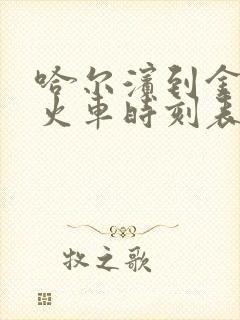 哈尔滨到金
火车时刻表
牧之歌